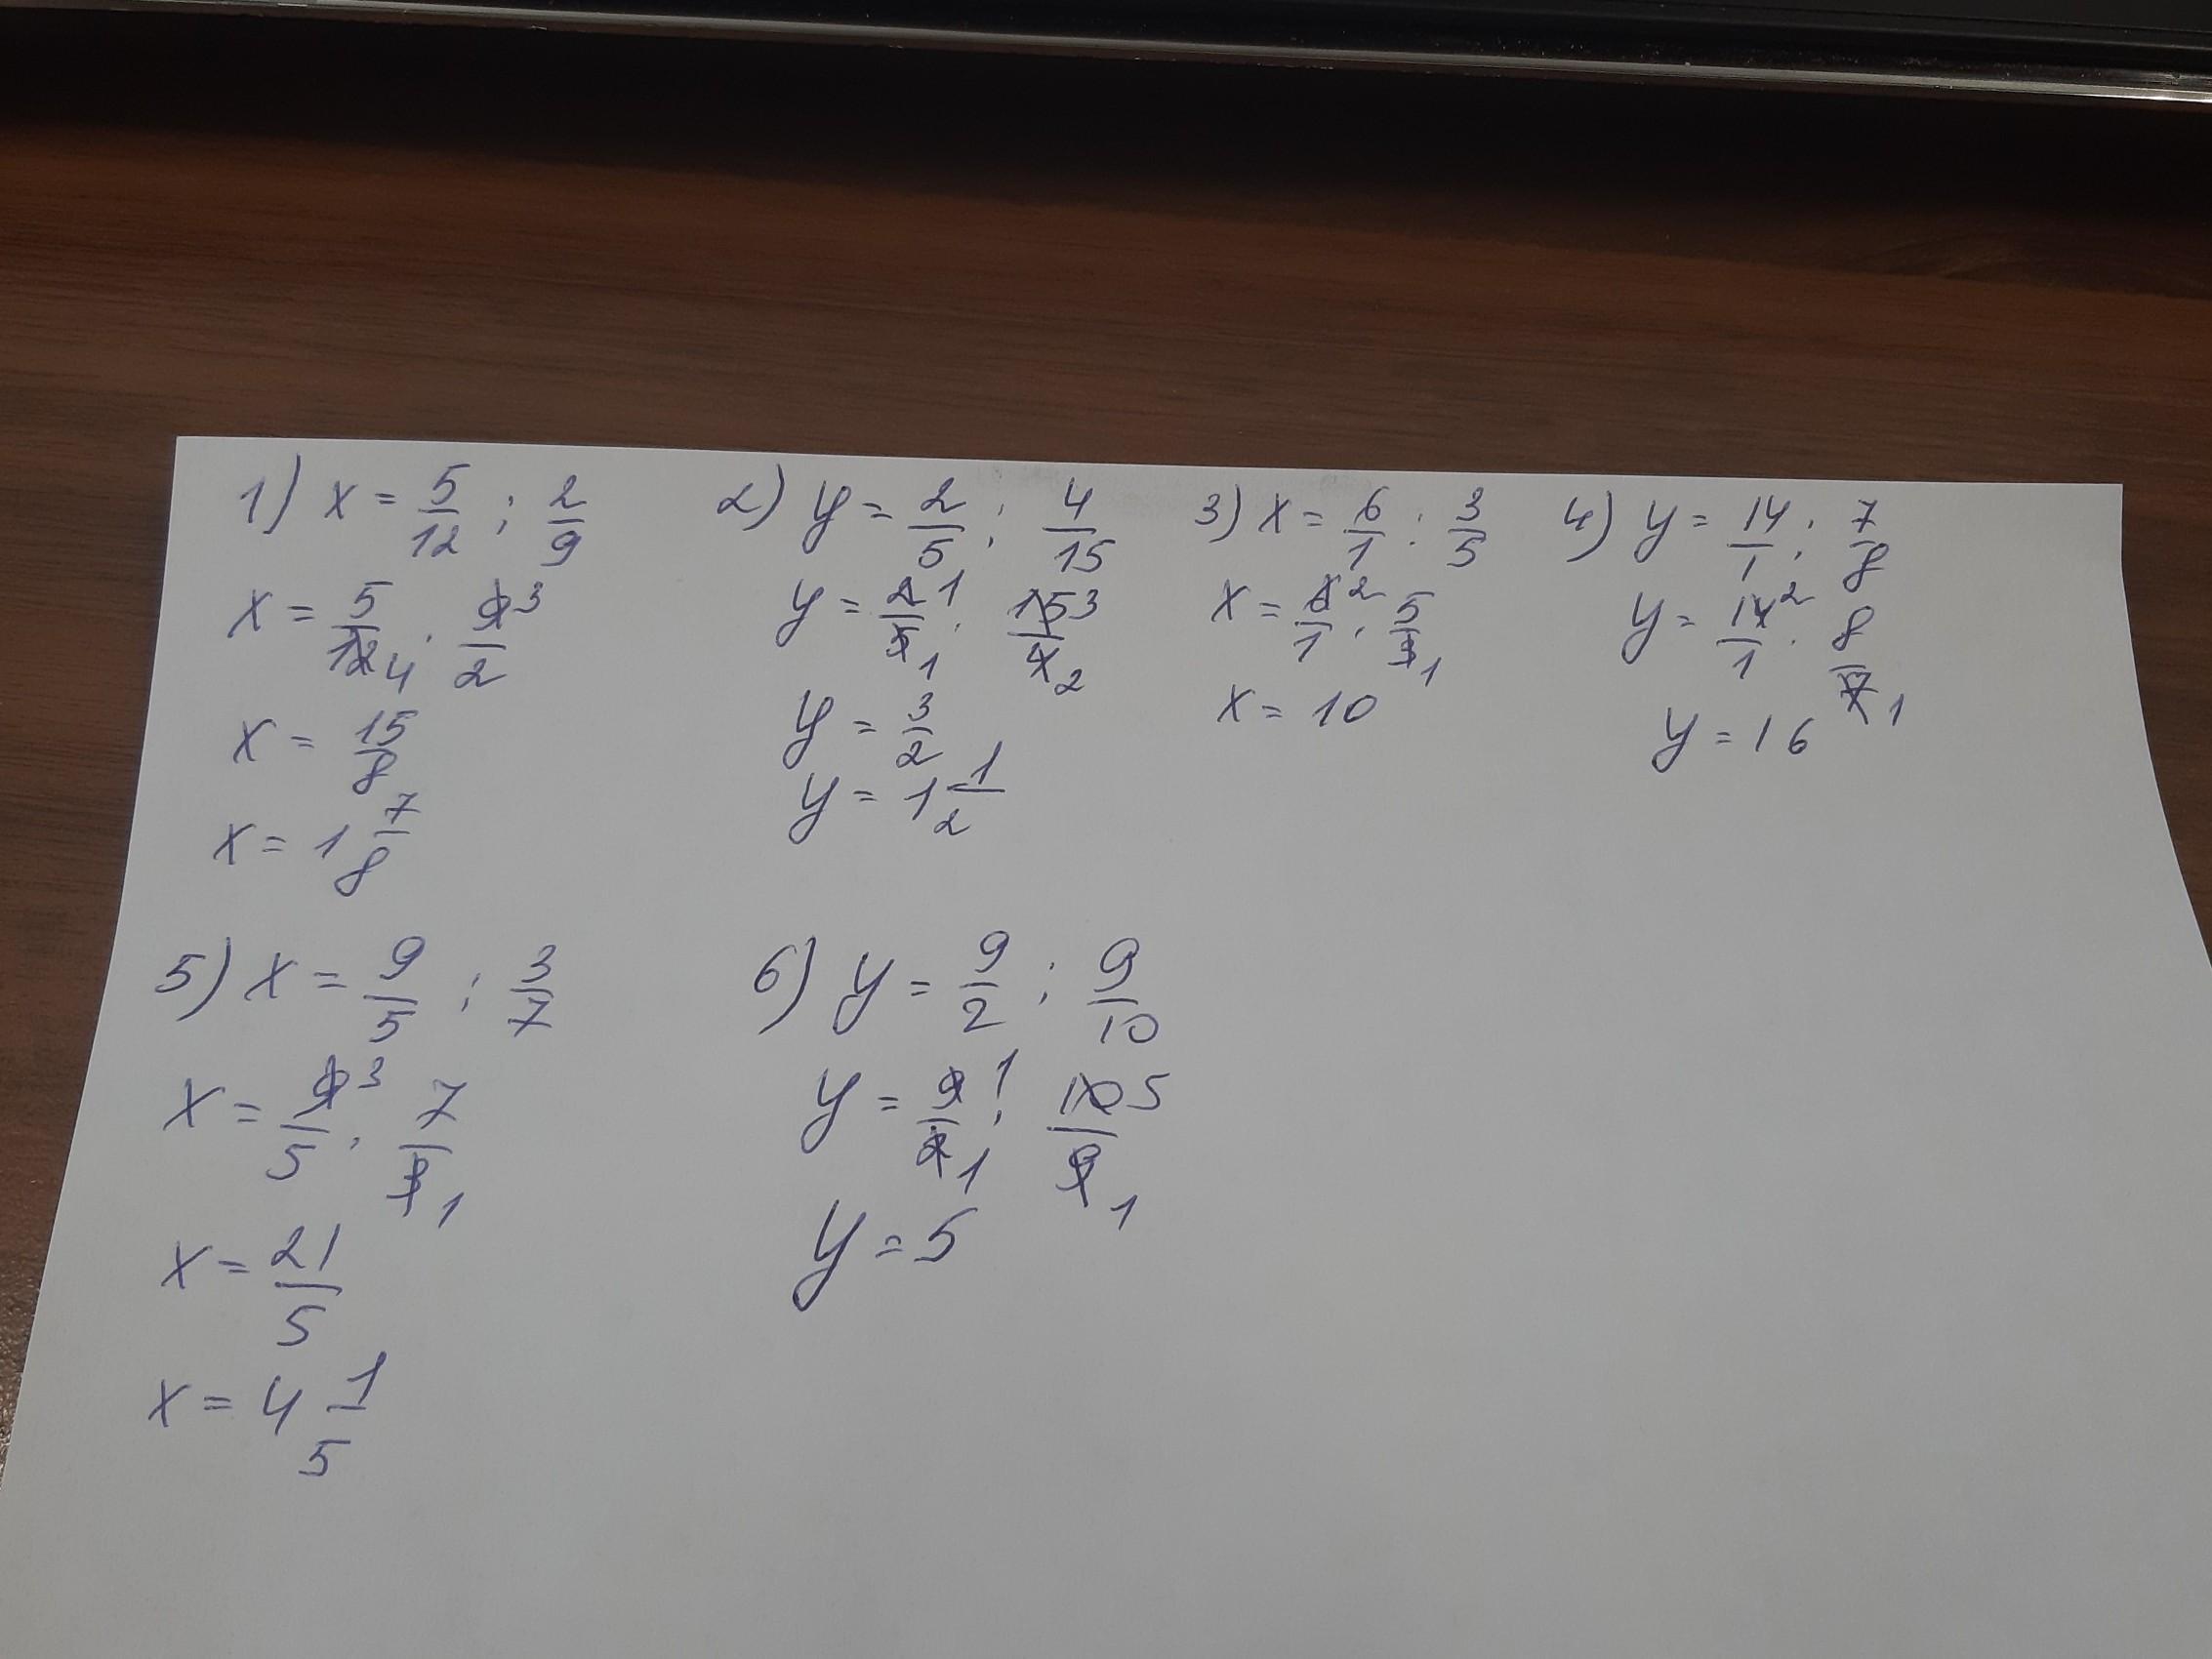 1) x = 5/12 : 2/9
x = 5/12 4 · 9 3/2
x = 15/8
x = 1 7/8
2) y = 2/5 : 4/15
y = 2 1/5 1 · 15 3/4 2
y = 3/2
y = 1 1/2
3) x = 6/1 : 3/5
x = 6 2/1 · 5/3 1
x = 10
4) y = 14/1 : 7/8
y = 14 2/1 · 8/7 1
y = 16
5) x = 9/5 : 3/7
x = 9 3/5 · 7/3 1
x = 21/5
x = 4 1/5
6) y = 9/2 : 9/10
y = 9 1/2 1 · 10 5/9 1
y = 5